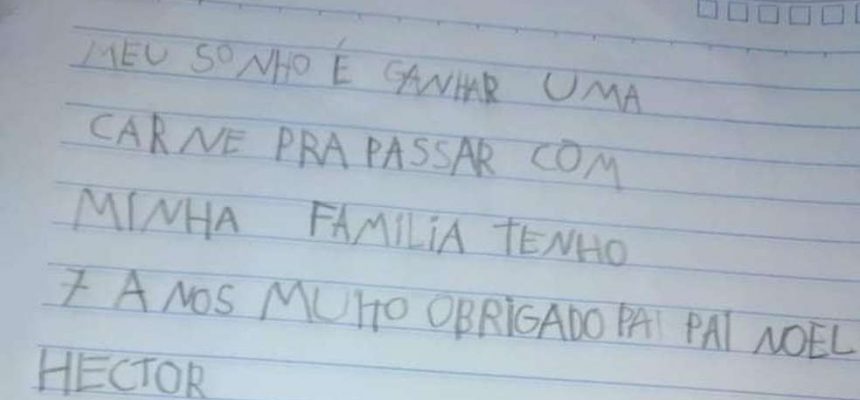 MEU SONHO É GANHAR UMA
CARNE PRA PASSAR COM
MINHA FAMILIA TENHO
7 ANOS MUITO OBRIGADO PAI PAI NOEL
HECTOR